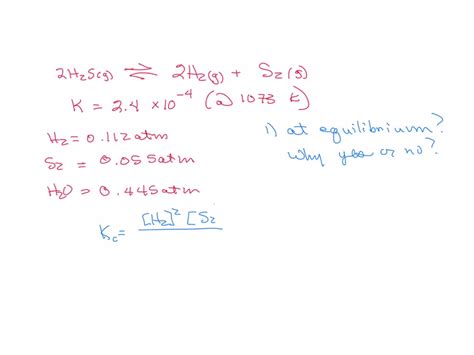 2H₂S(g) ⇌ 2H₂(g) + S₂(g)
K = 2.4 × 10⁻⁴ (@ 1073 K)
H₂ = 0.112 atm
S₂ = 0.055 atm
H₂O = 0.445 atm
1) at equilibrium?
why yes or no?
K_c = [H₂]² [S₂